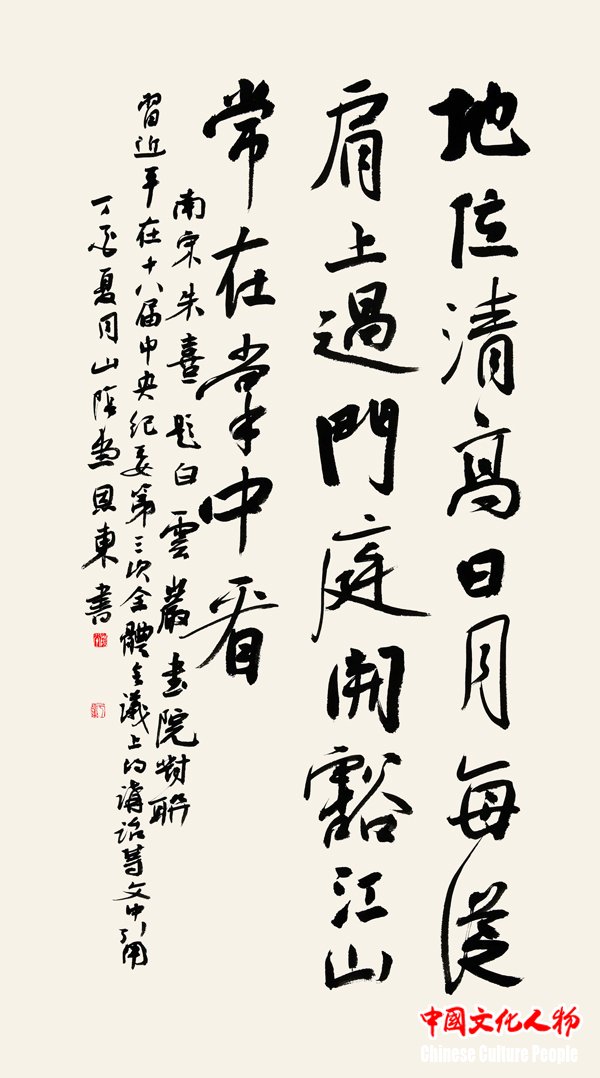 地位清高日月每從
肩上過門庭開豁江山
常在掌中看
南宋朱熹題白雲巖書院對聯
習近平在十八届中央纪委第三次全體會議上的講话等文中引用
丁酉夏月山陰盡思東書
中國文化人物
Chinese Culture People